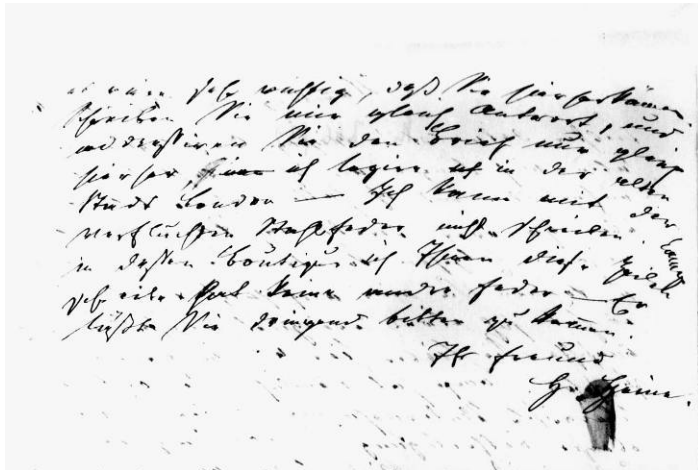 es wäre sehr wichtig, daß Sie hierherkämen.
Schreiben Sie mir gleich Antwort, und
addressiren Sie den Brief nur gleich
hierher ich logire in der alten
Stadt London — Ich kann mit der
verfluchten Stahlfeder nicht schreiben.
in dessen Boutique ich Ihnen diese Zeilen
schreibe hat keine andre Feder — Er
läßt Sie dringend bitten zu kommen.
Ihr Freund
H. Heine.